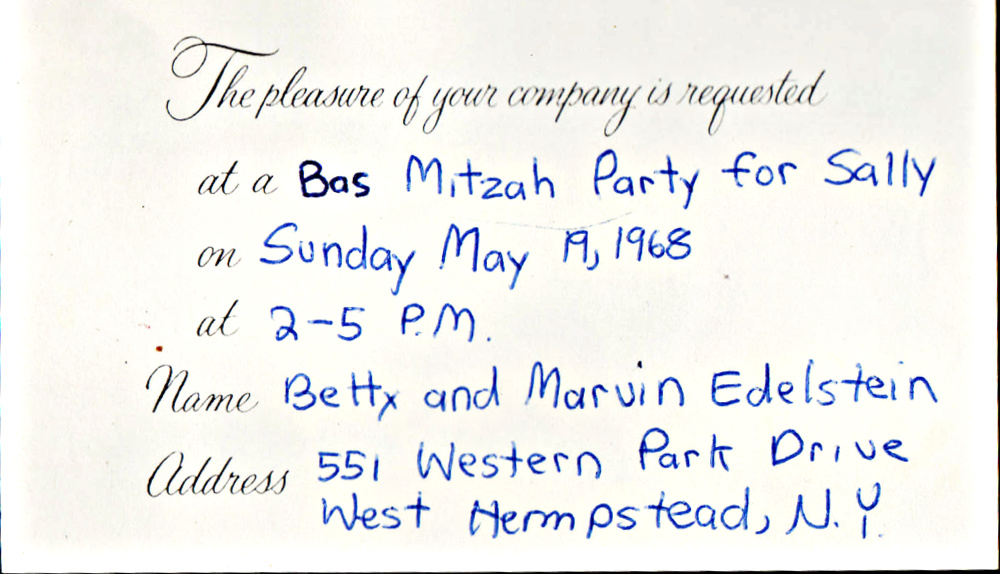 The pleasure of your company is requested
at a Bas Mitzah Party for Sally
on Sunday May 19, 1968
at 2-5 P.M.
Name Betty and Marvin Edelstein
Address 551 Western Park Drive
West Hempstead, N.Y.